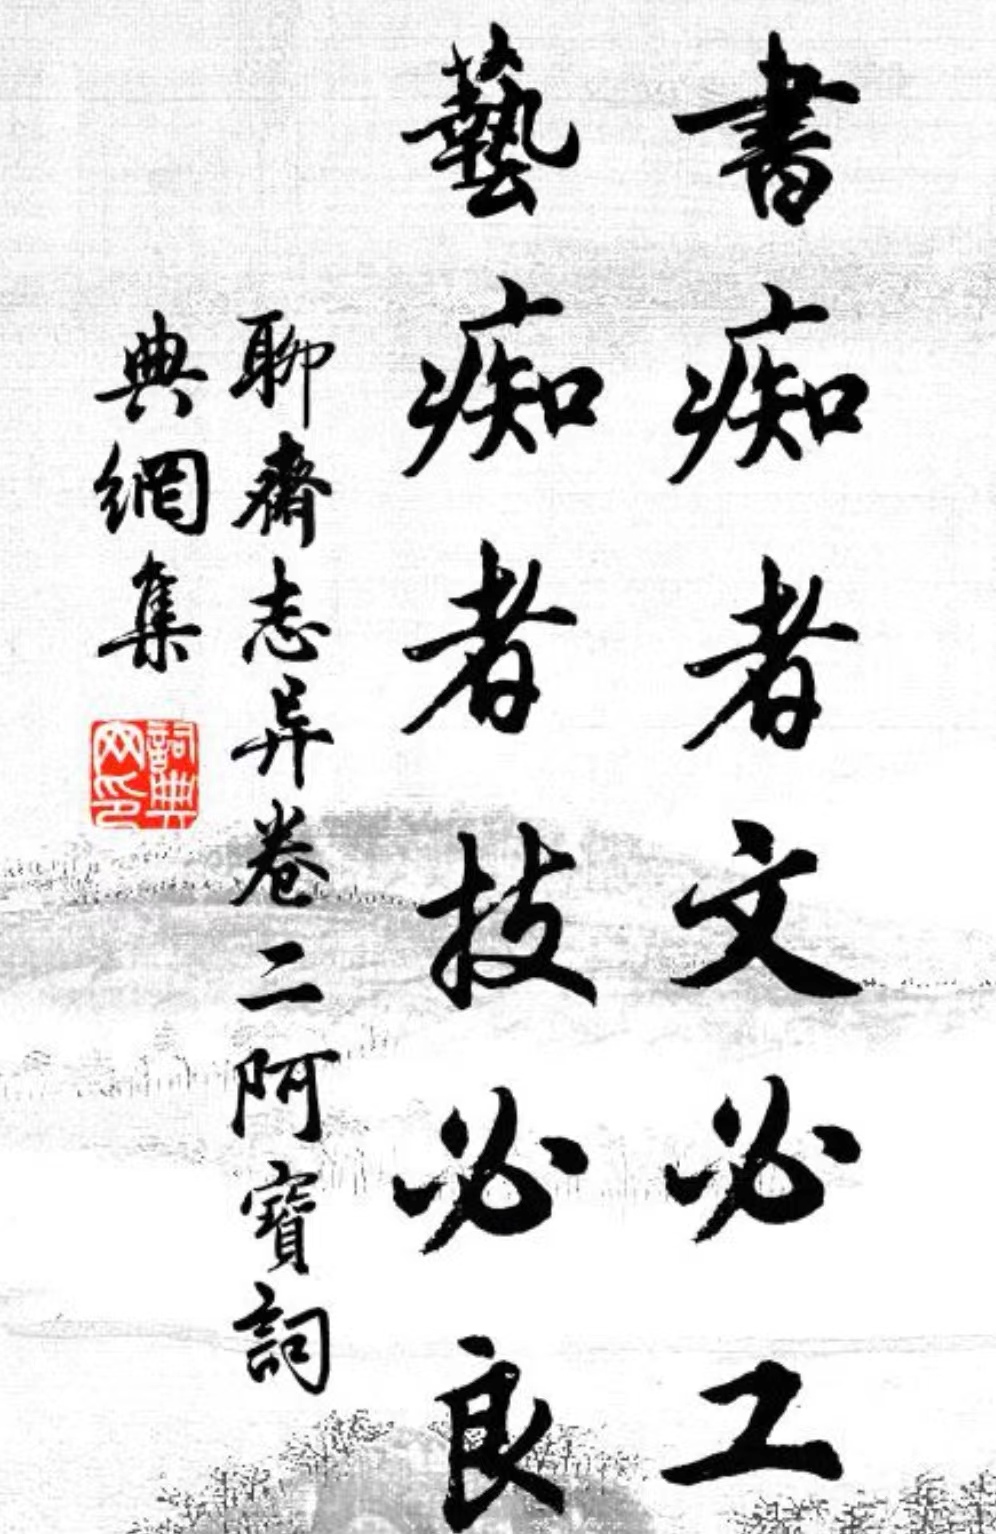 書痴者文必工
藝痴者技必良
聊齋志异卷二阿寶詞
典網集
詞典网印